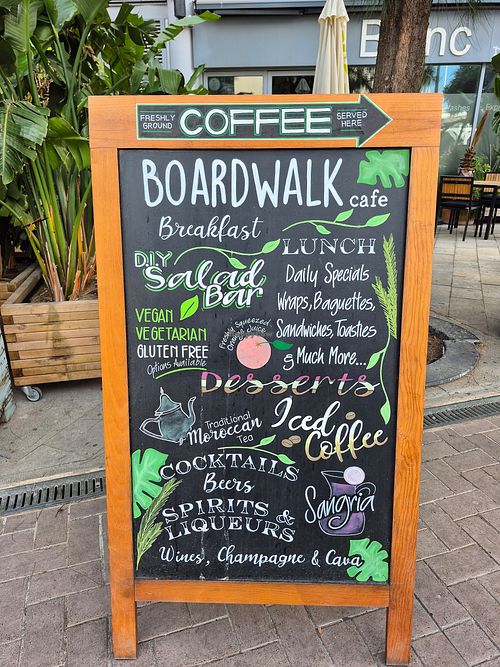 Blanc
FRESHLY GROUND COFFEE SERVED HERE
BOARDWALK cafe
Breakfast
LUNCH
DIY
Salad
Bar
Daily Specials
Wraps, Baguettes,
Sandwiches, Toasties
& Much More...
VEGAN
VEGETARIAN
GLUTEN FREE
Options Available
Freshly Squeezed
Orange Juice
Desserts
Traditional
Moroccan
Tea
Iced
Coffee
COCKTAILS
Beers
SPIRITS &
LIQUEURS
Sangria
Wines, Champagne & Cava